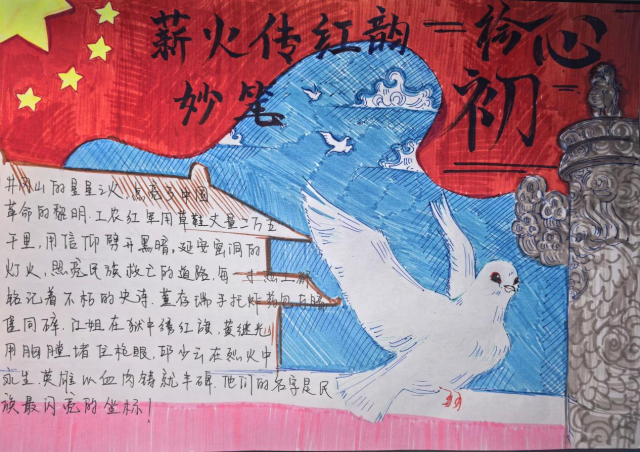 薪火传红韵
妙笔绘初心
井冈山的星星之火，点亮了中国
革命的黎明.工农红军用草鞋丈量二万五
千里，用信仰劈开黑暗，延安窑洞的
灯火，照亮民族救亡的道路，每一寸热土都
铭记着不朽的史诗.董存瑞手托炸药包在隆
隆同碎.江姐在狱中绣红旗.黄继光
用胸膛堵住枪眼.邱少云在烈火中
永生.英雄以血肉铸就丰碑.他们的名字是民
族最闪亮的坐标！